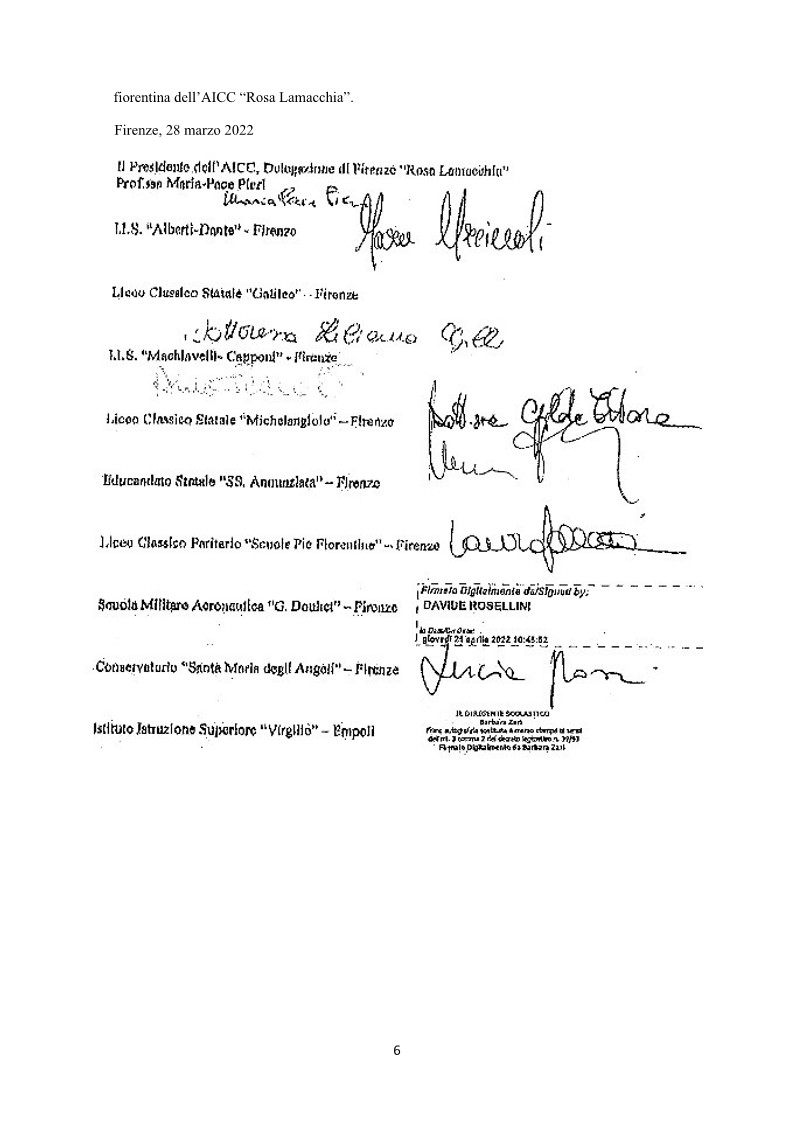 fiorentina dell'AICC “Rosa Lamacchia”.
Firenze, 28 marzo 2022
Il Presidente dell'AICC, Delegazione di Firenze "Rosa Lamacchia"
Prof.ssa Maria-Pace Pieri
Maria Pace Pieri
I.I.S. "Alberti-Dante" - Firenze
Liceo Classico Statale "Galileo" - Firenze
Dottoressa Liliana Gilli
I.I.S. "Machiavelli- Capponi" - Firenze
Liceo Classico Statale "Michelangiolo" – Firenze
Dott.ssa Gilda Tortora
Educandato Statale "SS. Annunziata" – Firenze
Liceo Classico Paritario "Scuole Pie Fiorentine" – Firenze
Scuola Militare Aeronautica "G. Douhet" – Firenze
Firmato Digitalmente da/Signed by:
DAVIDE ROSELLINI
In Data/On Date:
giovedì 21 aprile 2022 10:45:02
Conservatorio "Santa Maria degli Angeli" – Firenze
Istituto Istruzione Superiore "Virgilio" – Empoli
IL DIRIGENTE SCOLASTICO
Barbara Zari
Firma autografa sostituita a mezzo stampa ai sensi
dell'art. 3 comma 2 del decreto legislativo n. 39/93
Firmato Digitalmente da Barbara Zari
6